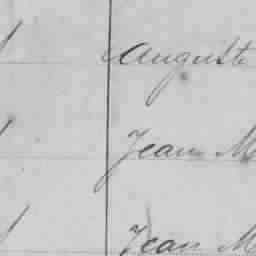 Auguste
Jean M
Jean M